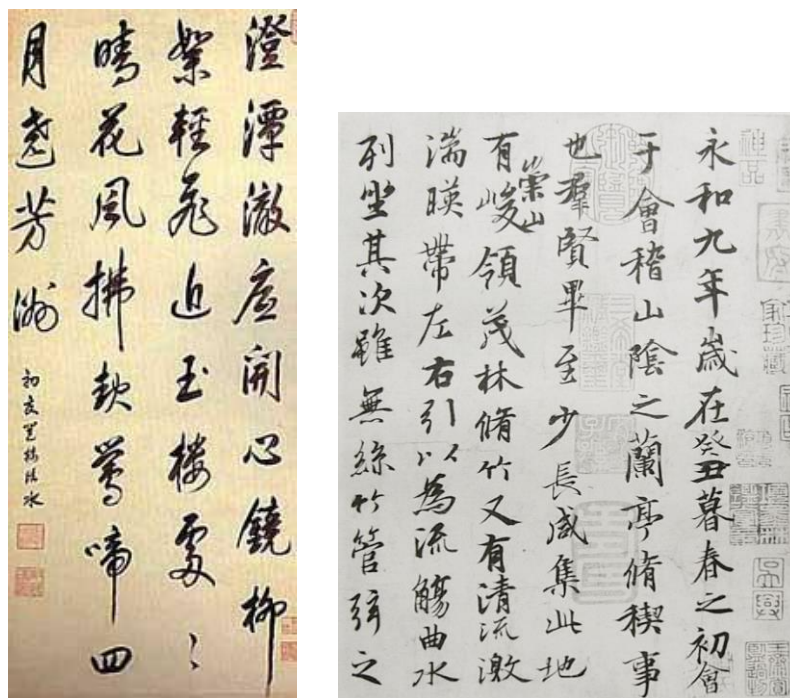 澄潭澈底開心鏡柳
絮輕飛近玉樓處〻
晴花風拂軟鶯啼四
月遶芳洲
初夏
永和九年歲在癸丑暮春之初會
于會稽山陰之蘭亭脩稧事
也羣賢畢至少長咸集此地
有崇山峻領茂林脩竹又有清流激
湍暎帶左右引以為流觴曲水
列坐其次雖無絲竹管弦之